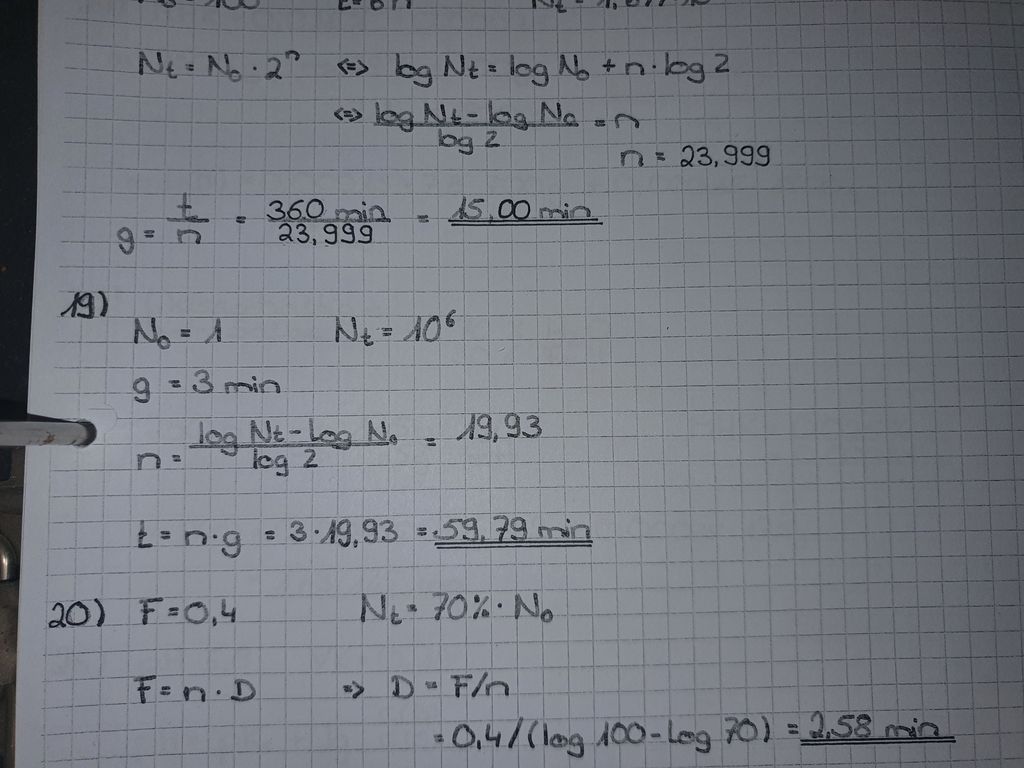 Nt = N0 · 2ⁿ <=> log Nt = log N0 + n · log 2
<=> (log Nt - log N0) / log 2 = n
n = 23,999
g = t/n = 360 min / 23,999 = 15,00 min
19)
N0 = 1 Nt = 10⁶
g = 3 min
n = (log Nt - log N0) / log 2 = 19,93
t = n · g = 3 · 19,93 = 59,79 min
20) F = 0,4 Nt = 70% · N0
F = n · D => D = F/n
= 0,4 / (log 100 - log 70) = 2,58 min